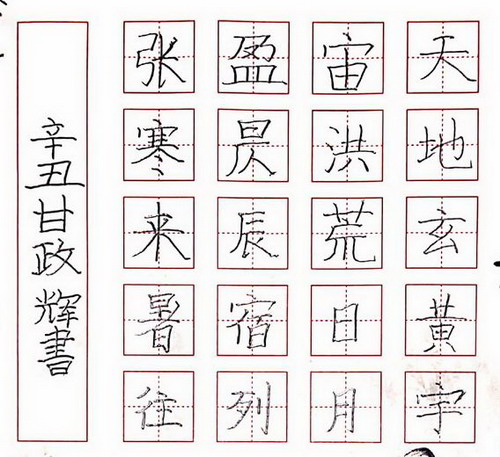 天地玄黄宇
宙洪荒日月
盈昃辰宿列
张寒来暑往
辛丑甘政辉書